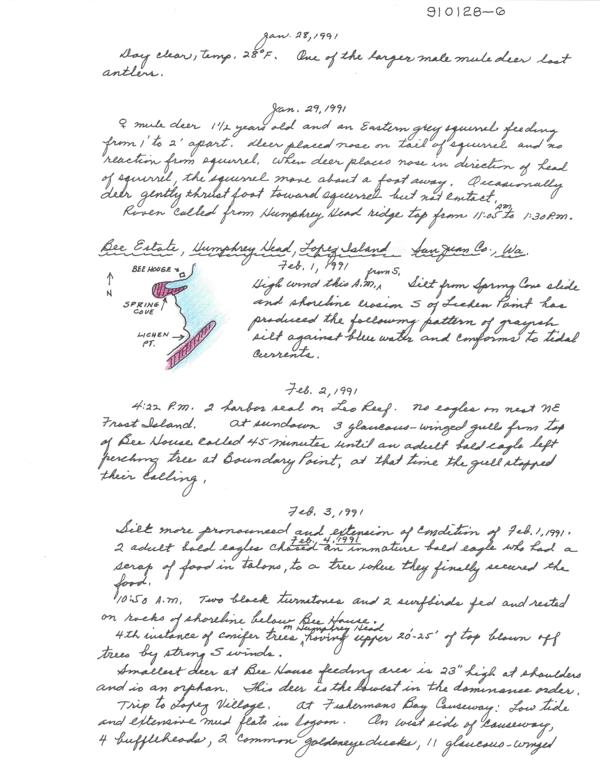 910128-6
Jan. 28, 1991
Day clear, temp. 28°F. One of the larger male mule deer lost
antlers.
Jan. 29, 1991
♀ mule deer 1 1/2 years old and an Eastern grey squirrel feeding
from 1' to 2' apart. Deer placed nose on tail of squirrel and no
reaction from squirrel. When deer places nose in direction of head
of squirrel, the squirrel move about a foot away. Occasionally
deer gently thrust foot toward squirrel but not contact.
Raven called from Humphrey Head ridge top from 11:05 AM to 1:30 P.M.
Bee Estate, Humphrey Head, Lopez Island San Juan Co., Wa.
Feb. 1, 1991
BEE HOUSE
N
SPRING
COVE
LICHEN
PT.
High wind this A.M. from S. Silt from Spring Cove slide
and shoreline erosion S of Lichen Point has
produced the following pattern of grayish
silt against blue water and conforms to tidal
currents.
Feb. 2, 1991
4:22 P.M. 2 harbor seal on Leo Reef. No eagles on nest NE
Frost Island. At sundown 3 glaucous-winged gulls from top
of Bee House called 45 minutes until an adult bald eagle left
perching tree at Boundary Point, at that time the gull stopped
their calling.
Feb. 3, 1991
Silt more pronounced and extension of condition of Feb. 1, 1991.
Feb. 4, 1991
2 adult bald eagles chased an immature bald eagle who had a
scrap of food in talons, to a tree where they finally secured the
food.
10:50 A.M. Two black turnstones and 2 surfbirds fed and rested
on rocks of shoreline below Bee House.
4th instance of conifer trees on Humphrey Head having upper 20'-25' of top blown off
trees by strong S winds.
Smallest deer at Bee House feeding area is 23" high at shoulders
and is an orphan. This deer is the lowest in the dominance order.
Trip to Lopez Village. At Fishermans Bay Causeway: Low tide
and extensive mud flats in lagoon. On west side of causeway,
4 buffleheads, 2 common goldeneye ducks, 11 glaucous-winged